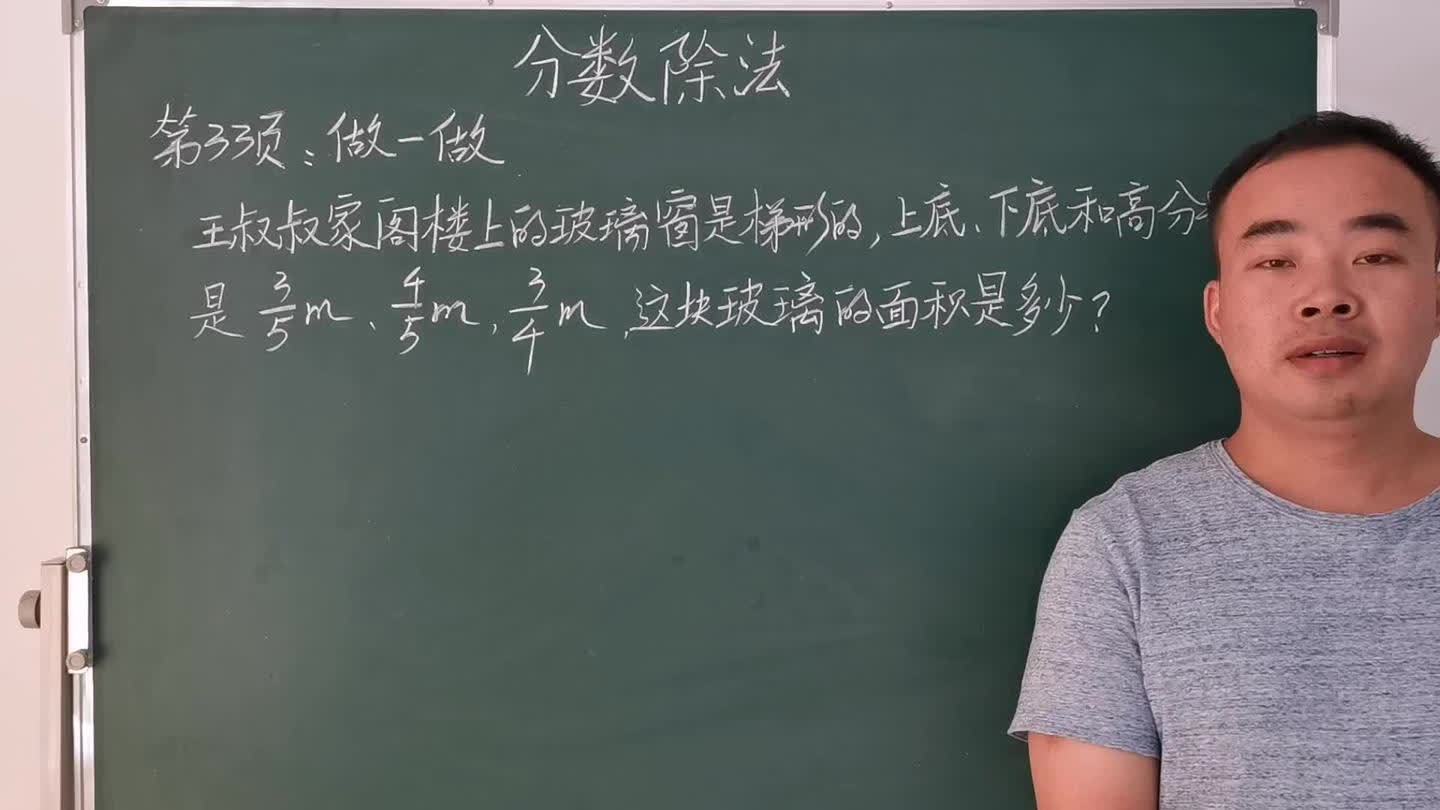 分数除法
第33页：做一做
王叔叔家阁楼上的玻璃窗是梯形的,上底、下底和高分
是 3/5 m、4/5 m,3/4 m,这块玻璃的面积是多少?